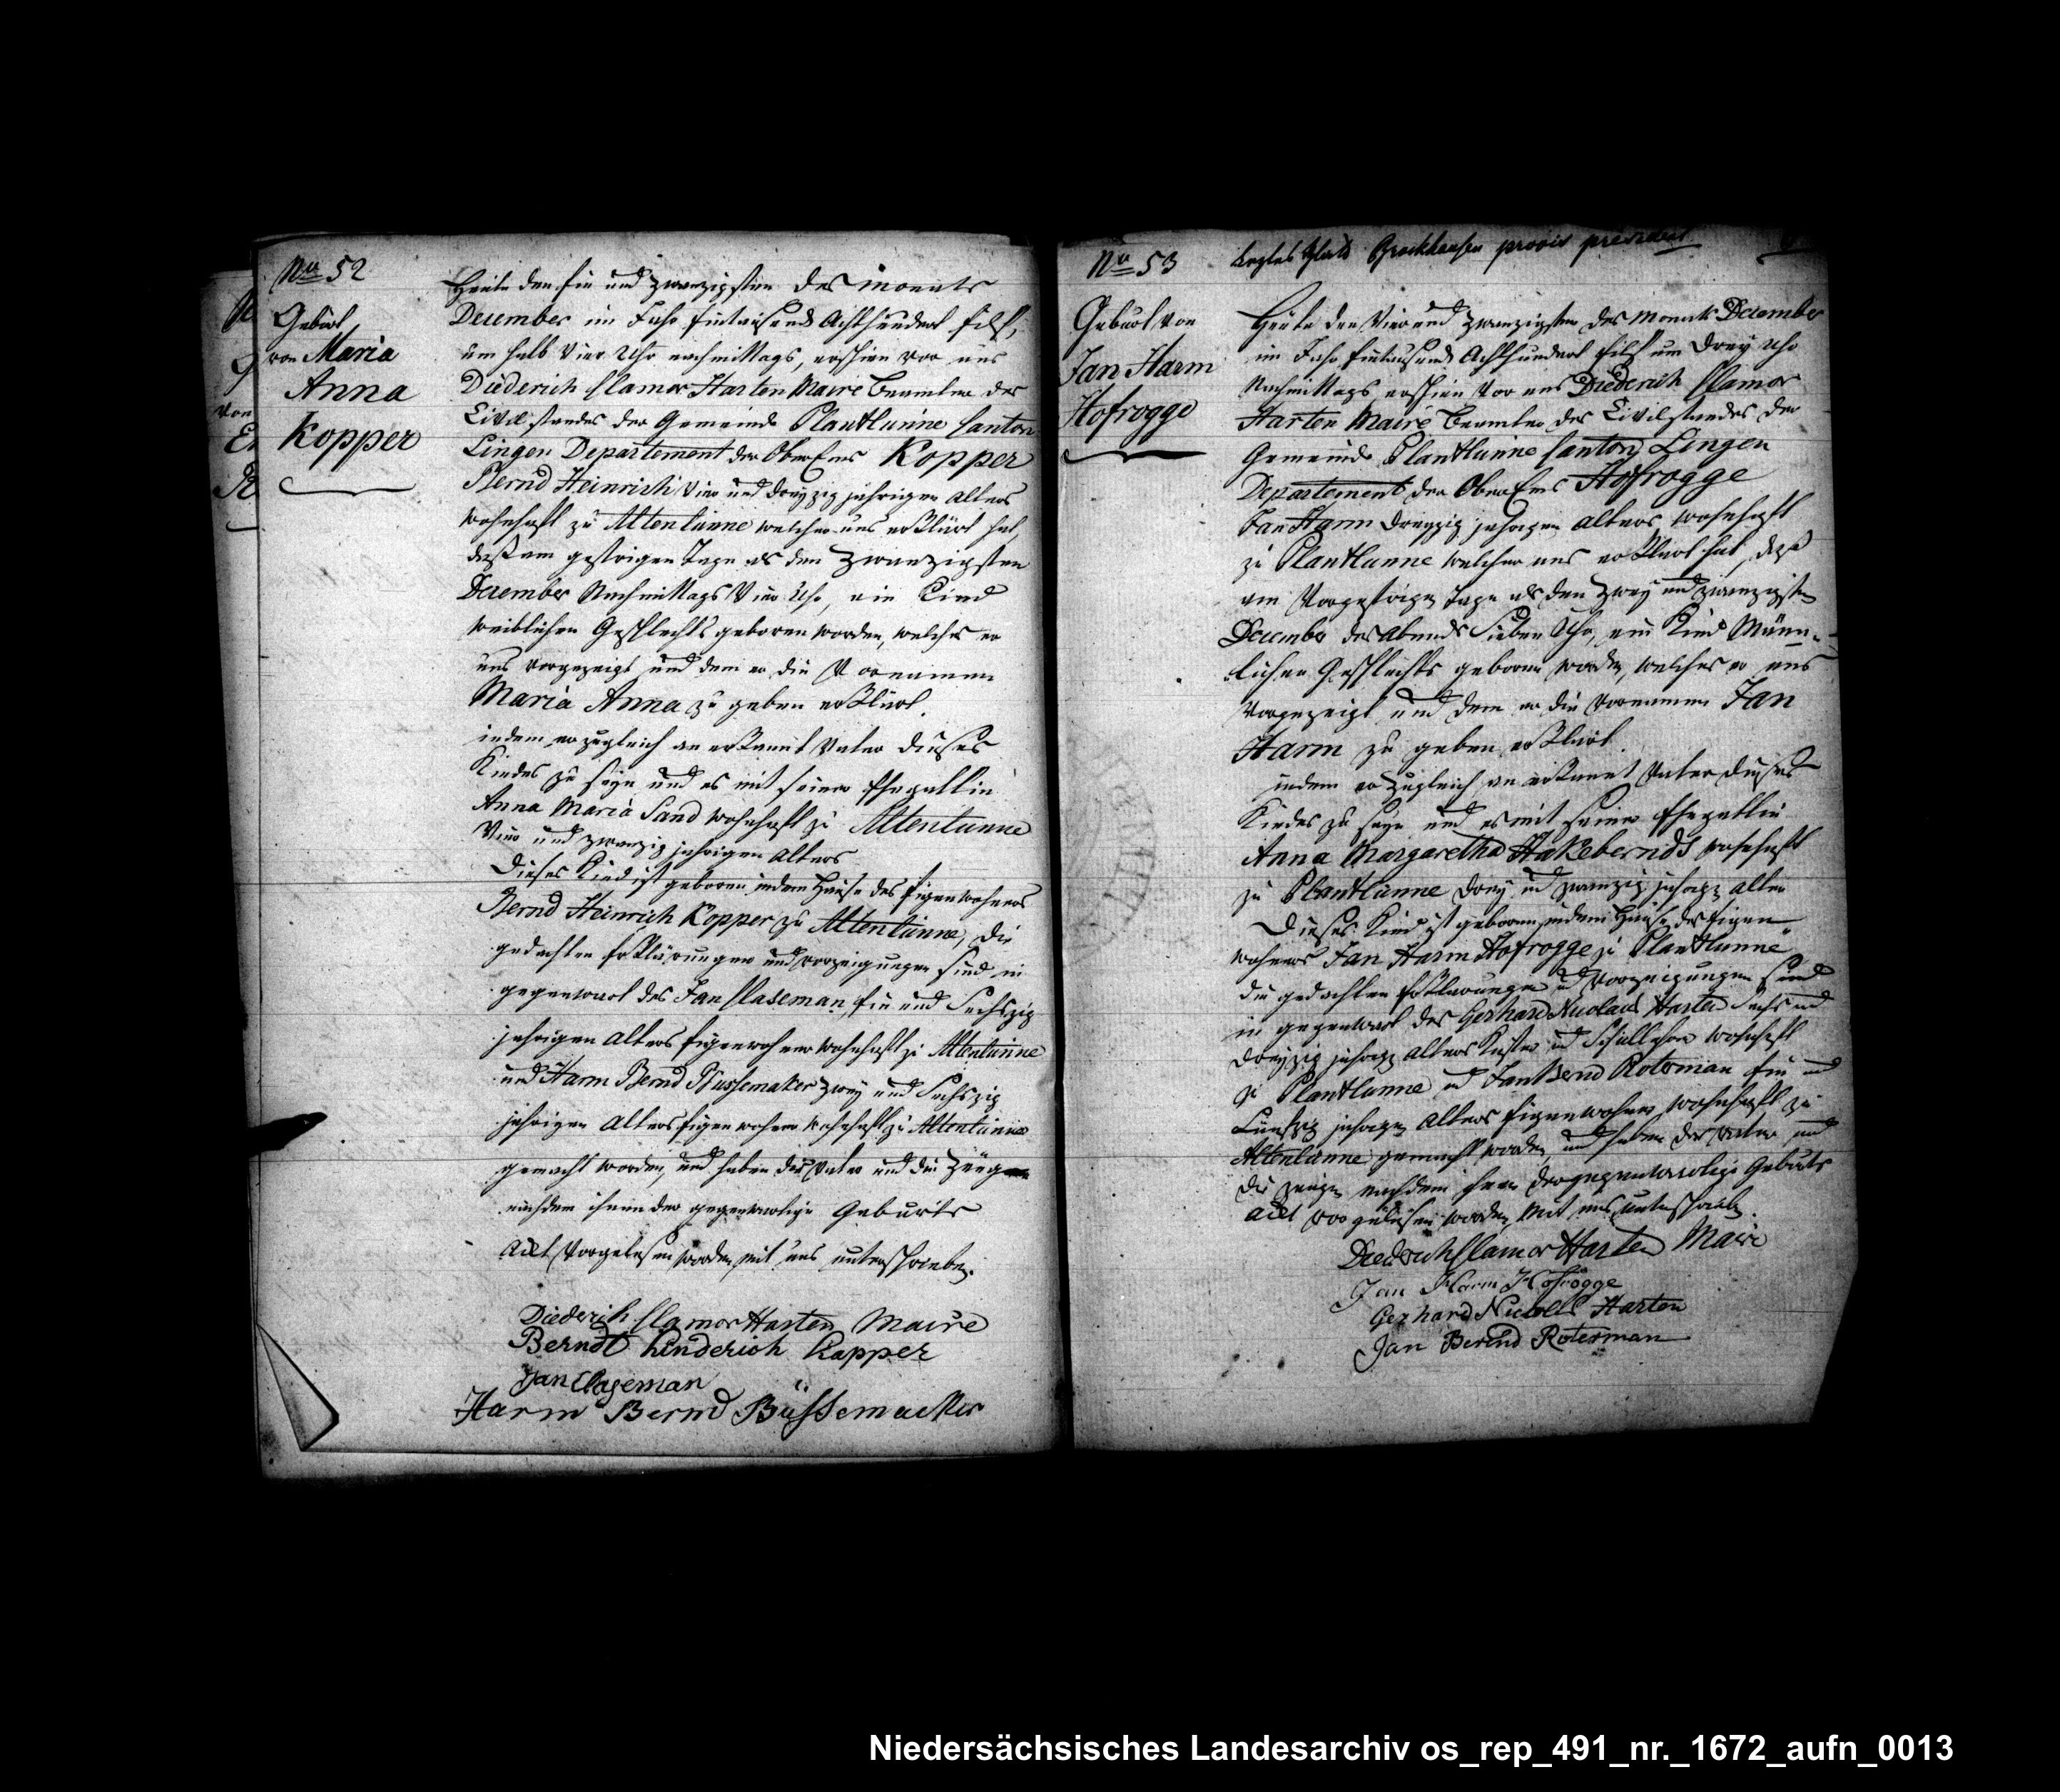 No 52
Geburt
von Maria
Anna
Kopper
Heute den Ein und zwanzigsten des Monats
December im Jahr Eintausend Achthundert Eilf,
um halb Vier Uhr nachmittags, erschien vor uns
Diederich Clamor Harten Maire Beamter des
Civil standes der Gemeinde Plantlünne Canton
Lingen Departement der OberEms Kopper
Bernd Heinrich Vier und dreyzig jahrigen Alters
wohnhaft zu Altenlünne welcher uns erklärt hat,
daß am gestrigen Tage als den Zwanzigsten
December Nachmittags Vier Uhr, ein Kind
weiblichen Geschlechts geboren worden, welches er
uns vorgezeigt und dem er die Vornamen
Maria Anna zu geben erklärt.
indem er zugleich anerkannt Vater dieses
Kindes zu seyn und es mit seiner Ehegattin
Anna Maria Sand wohnhaft zu Altenlünne
Vier und zwanzig jahrigen Alters
Dieses Kind ist geboren in dem Hause des Eigenwohners
Bernd Heinrich Kopper zu Altenlünne, die
gedachten Erklärungen und vorzeigungen sind in
gegenwart des Jan Claseman, Ein und Sechszig
jahrigen Alters Eigenwohner wohnhaft zu Altenlünne
und Harm Bernd Büssemaker zwey und Sechszig
jahrigen Alters Eigenwohner wohnhaft zu Altenlünne
gemacht worden, und haben der Vater und die Zeugen
nachdem ihnen der gegenwartige Geburts
Act Vorgelesen worden mit uns unterschrieben.
Diederich Clamor Harten Maire
Berndt hinderich Kopper
Jan Clageman
Harm Bernd Büssemacker
No 53
letztes Blatt Brockhausen provis president
Geburt von
Jan Harm
Hofrogge
Heute den Vier und zwanzigsten des Monats December
im Jahr Eintausend Achthundert Eilf um drey Uhr
Nachmittags, erschien vor uns Diederich Clamor
Harten Maire Beamter des Civilstandes der
Gemeinde Plantlünne Canton Lingen
Departement der OberEms Hofrogge
Jan Harm dreyzig jahrigen Alters wohnhaft
zu Plantlünne welcher uns erklärt hat, daß
am Vorgestrigen Tage als den zwey und zwanzigsten
December des Abends Sieben Uhr, ein Kind Männ-
lichen Geschlechts geboren worden, welches er uns
Vorgezeigt und dem er die Vornamen Jan
Harm zu geben erklärt.
indem er zugleich anerkannt Vater dieses
Kindes zu seyn und es mit seiner Ehegattin
Anna Margaretha Hakebernds wohnhaft
zu Plantlünne drey und zwanzig jahrigen Alters
Dieses Kind ist geboren in dem Hause des Eigen-
wohners Jan Harm Hofrogge zu Plantlünne
die gedachten Erklärungen und Vorzeigungen sind
in gegenwart des Gerhard Nicolaus Harten Sechs und
dreyzig jahrigen Alters Küster und Schullehrer wohnhaft
zu Plantlünne und Jan Bernd Roterman Ein und
Fünfzig jahrigen Alters Eigenwohner wohnhaft zu
Altenlünne gemacht worden, und haben der Vater und
die Zeugen nachdem ihnen der gegenwartige Geburts
Act vorgelesen worden, mit uns unterschrieben.
Diederich Clamor Harten Maire
Jan Harm Hofrogge
Gerhard Nicolas Harten
Jan Berend Roterman
Niedersächsisches Landesarchiv os_rep_491_nr._1672_aufn_0013